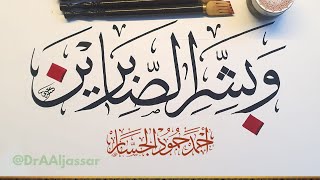 وَبَشِّرِ الصَّابِرِينَ
أحمد حمود الجسار
@DrAAljassar